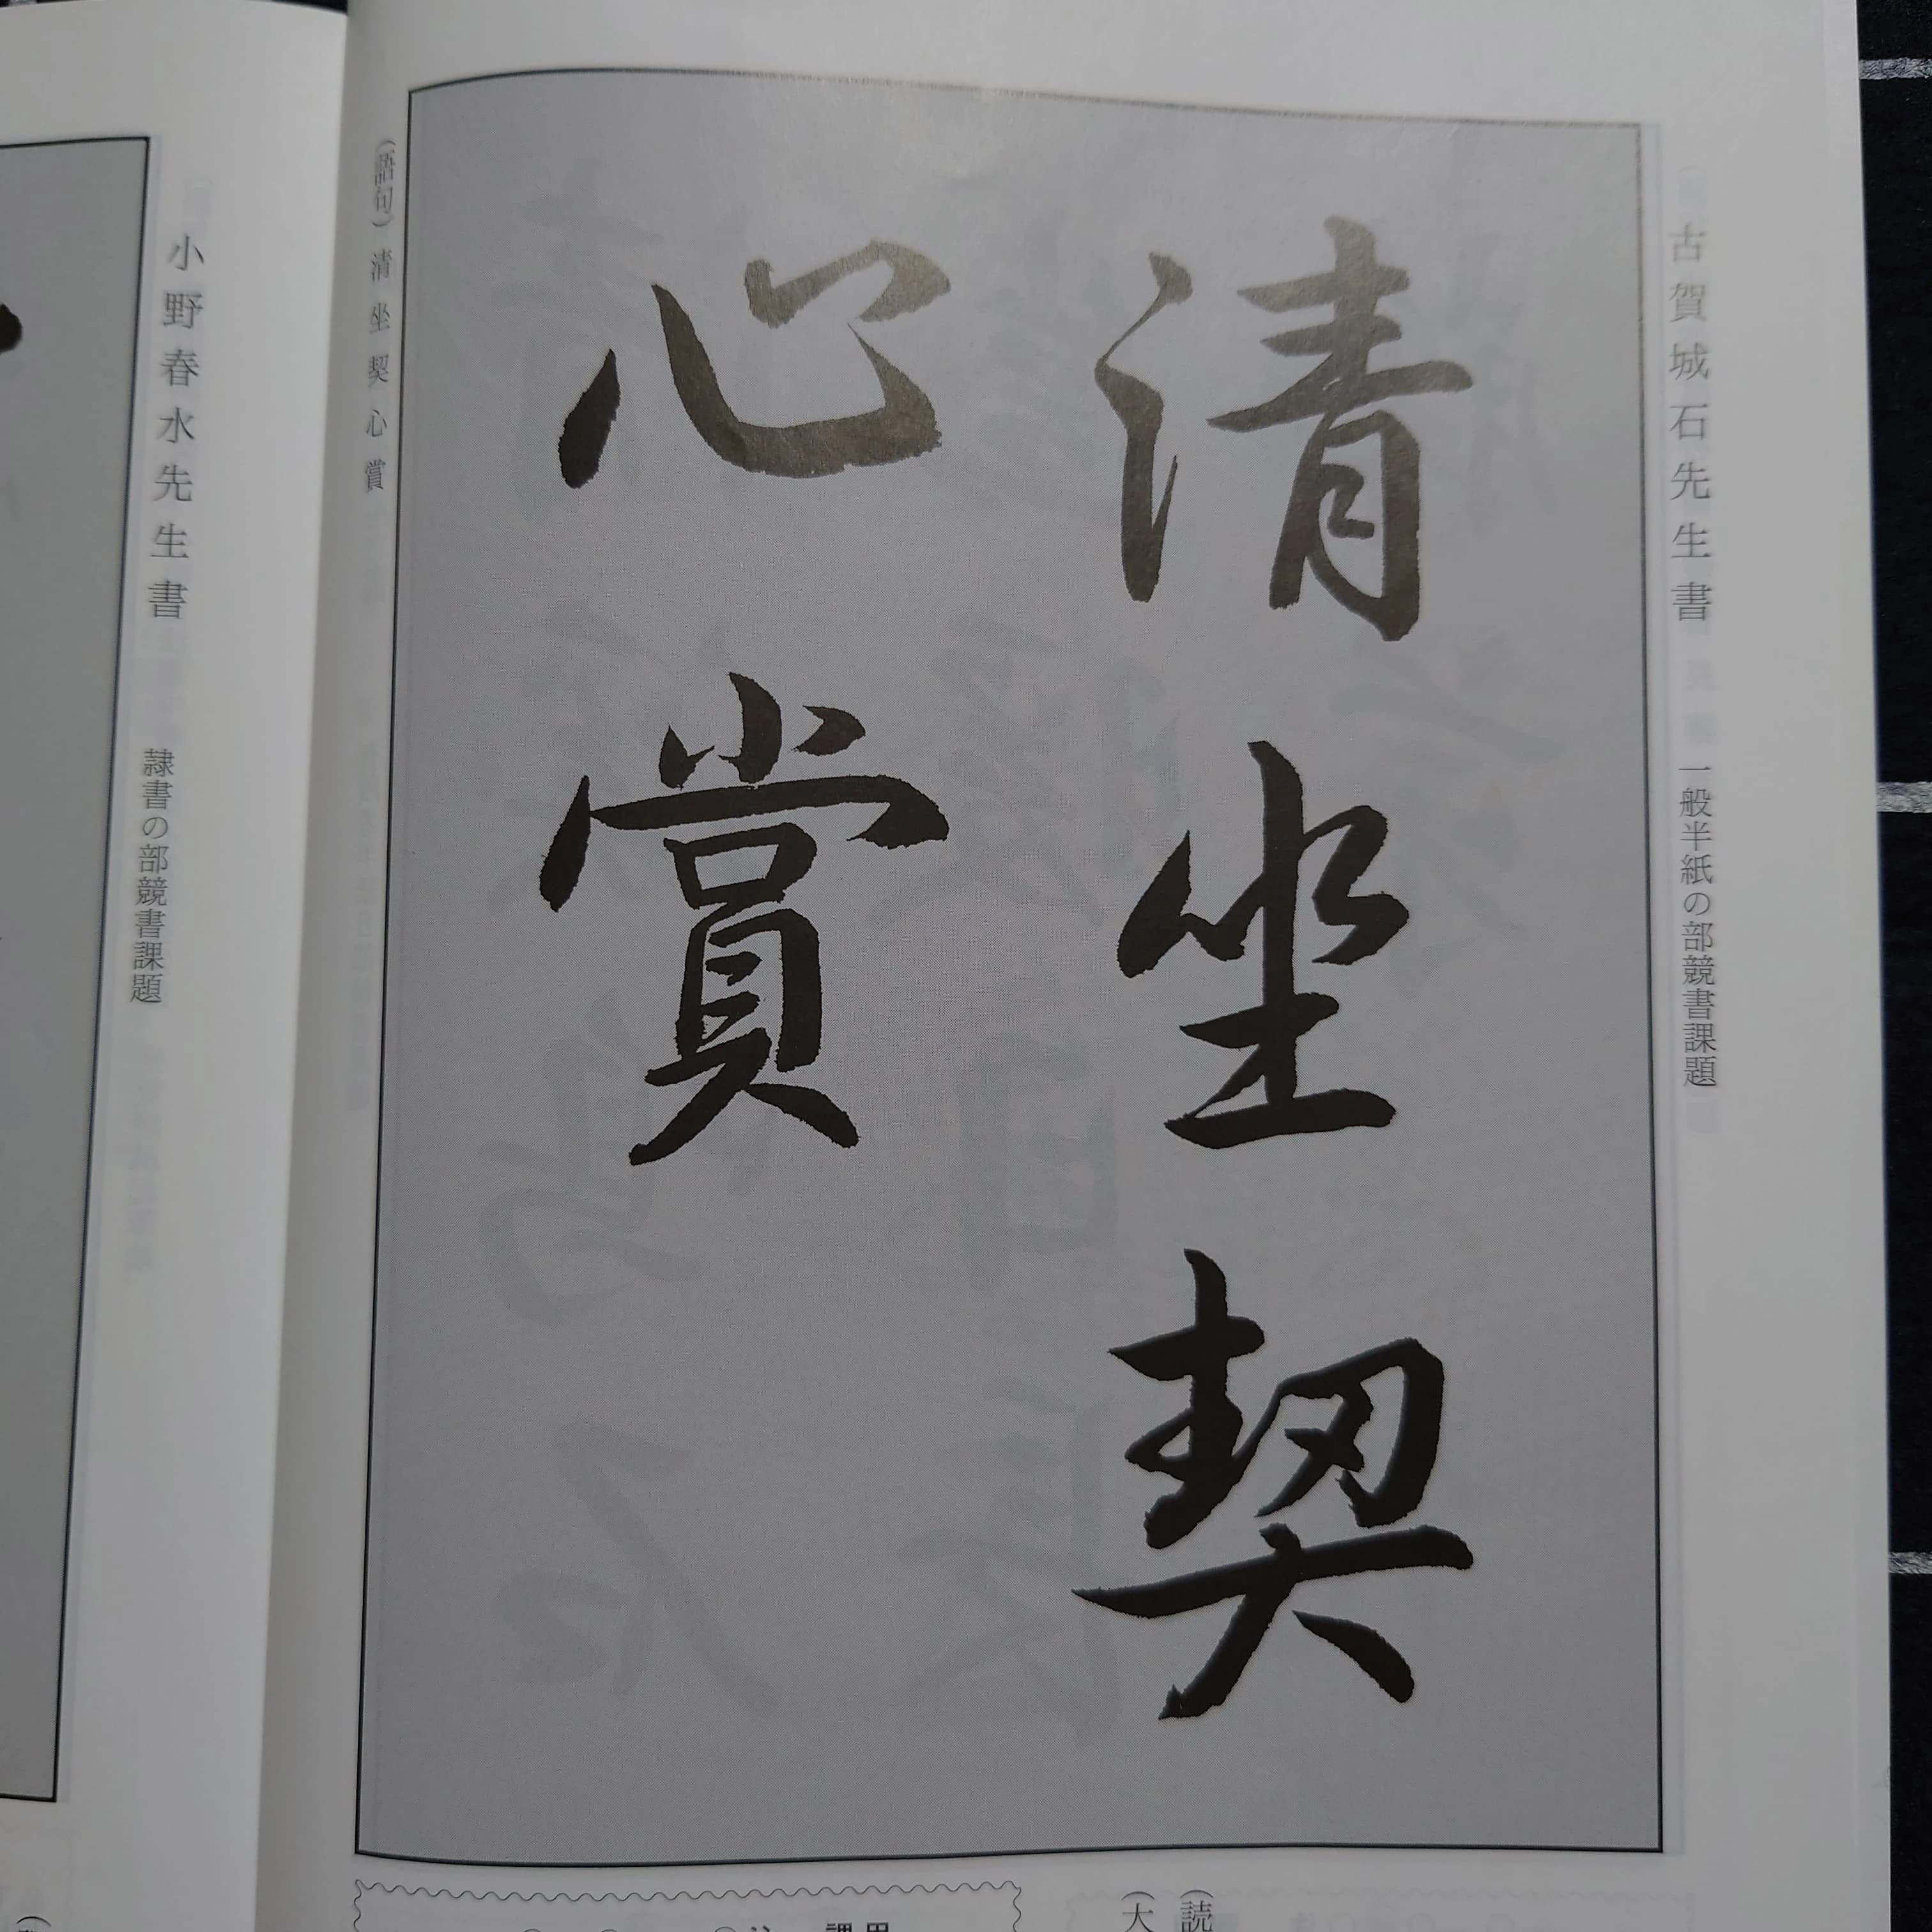 古賀城石先生書 一般半紙の部競書課題
清坐契
心賞
(語句) 清坐契心賞
(読
(大
小野春水先生書 隷書の部競書課題